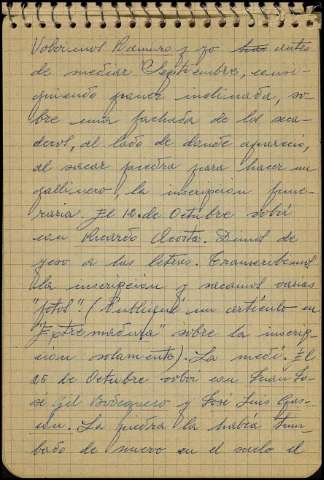 Volvimos Romero y yo antes
de mediar Septiembre, consi-
guiendo poner inclinada, so-
bre una fachada de los seca-
deros, al lado de donde apareció,
al sacar piedra para hacer un
gallinero, la inscripción fune-
raria. El 12 de Octubre volví
con Ricardo Acosta. Dimos de
yeso a las letras. Transcribimos
la inscripcion y sacamos varias
"fotos". (Publiqué un artículo en
"Extremadura" sobre la inscrip-
ción solamente). La medí. El
25 de Octubre volví con Juan Jo-
sé Gil Borreguero y José Luis
La piedra la había tum-
bado de nuevo en el suelo el